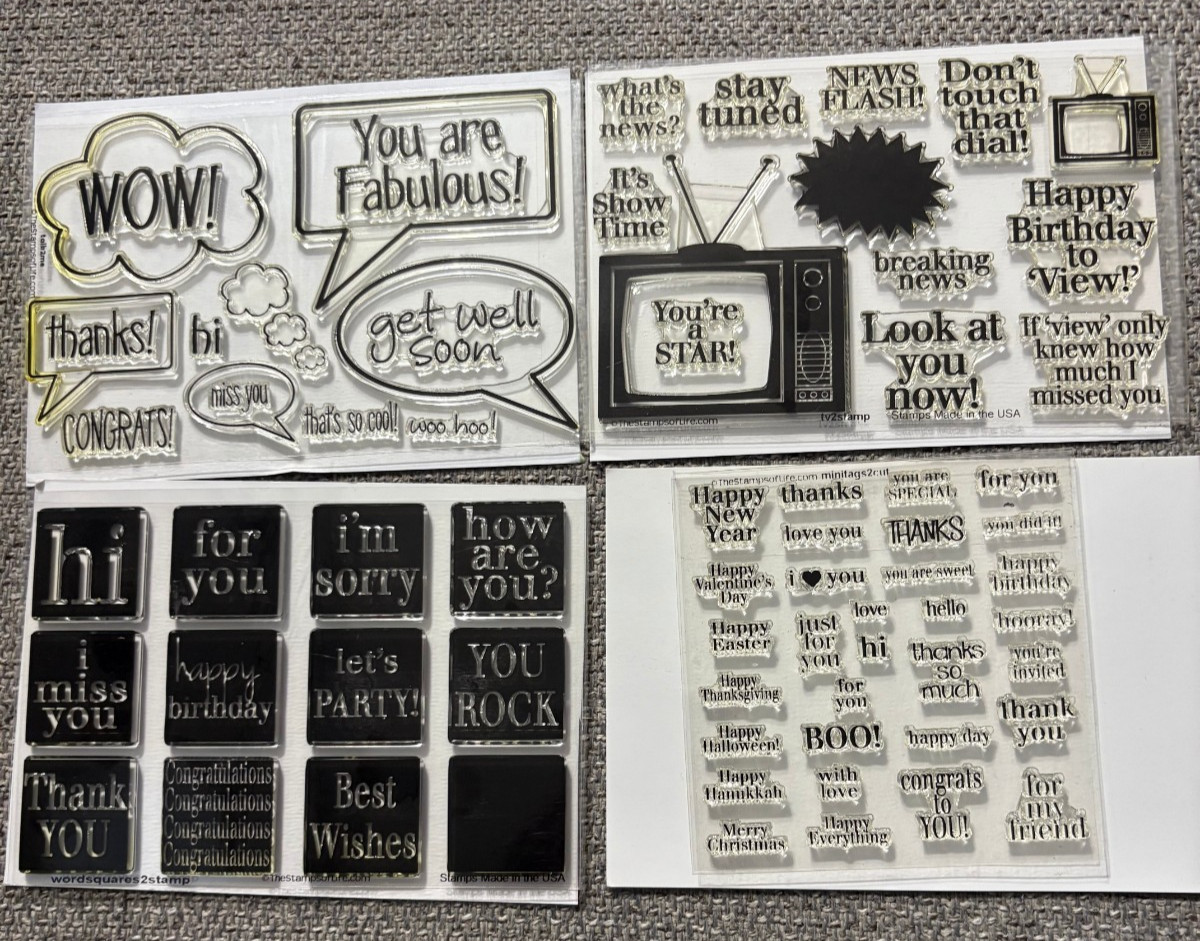 WOW!
You are
Fabulous!
thanks!
hi
get well
soon
miss you
CONGRATS!
that's so cool!
woo hoo!
what's
the
news?
stay
tuned
NEWS
FLASH!
Don't
touch
that
dial!
It's
Show
Time
You're
a
STAR!
breaking
news
Happy
Birthday
to
'View!'
Look at
you
now!
If 'view' only
knew how
much I
missed you
©TheStampsofLife.com
tv2stamp
Stamps Made in the USA
hi
for
you
i'm
sorry
how
are
you?
i
miss
you
happy
birthday
let's
PARTY!
YOU
ROCK
Thank
YOU
Congratulations
Congratulations
Congratulations
Congratulations
Best
Wishes
wordsquares2stamp
©TheStampsofLife.com
Stamps Made in the USA
©TheStampsofLife.com minitags2cut
Happy
New
Year
thanks
you are
SPECIAL
for you
love you
THANKS
you did it!
Happy
Valentine's
Day
i ♥ you
you are sweet
happy
birthday
love
hello
hooray!
Happy
Easter
just
for
you
hi
thanks
so
much
you're
invited
Happy
Thanksgiving
for
you
thank
you
Happy
Halloween!
BOO!
happy day
Happy
Hanukkah
with
love
congrats
to
YOU!
for
my
friend
Merry
Christmas
Happy
Everything